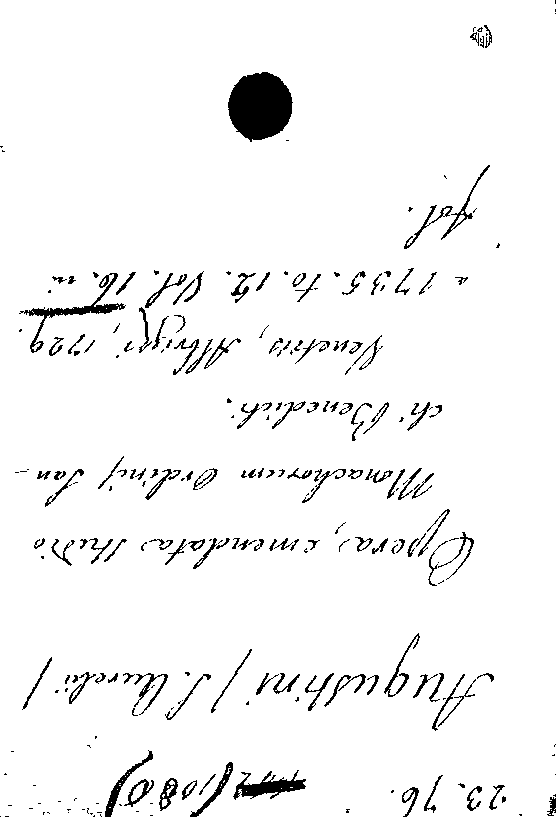 23.76. (1080)
Augustini / S. Aurelii /
Opera, emendata studio
Monachorum Ordinis San-
cti Benedicti.
Venetiis, Albrizzi, 1729.
- 1735. to. 12. Vol. 16. in
fol.